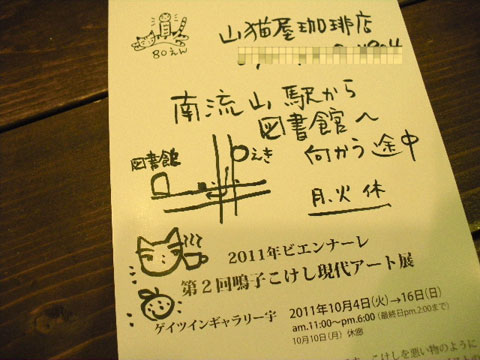 山猫屋珈琲店
80えん
南流山駅から
図書館へ
向かう途中
図書館
えき
月、火 休
2011年ビエンナーレ
第2回鳴子こけし現代アート展
ゲイツインギャラリー宇 2011年10月4日(火)→16日(日)
am.11:00~pm.6:00(最終日pm.2:00まで)
10月10日(月)休廊
こけしを悪い物のように